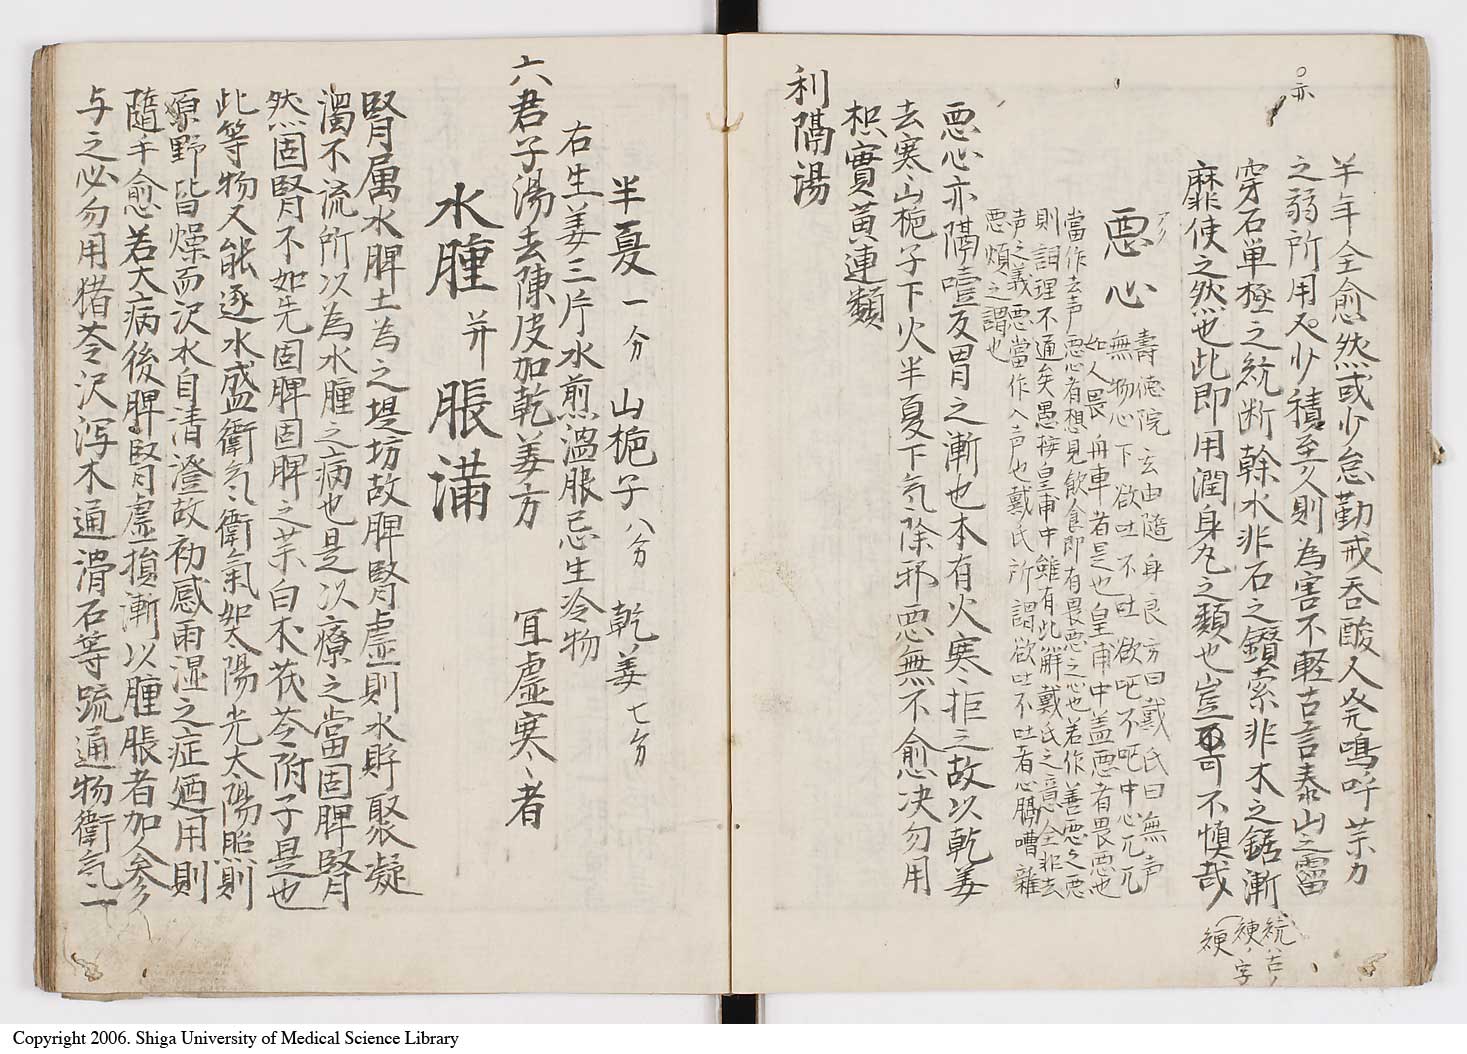 ○亦
半年全愈然或少怠勤戒吞酸又発嗚呼芋カ
之弱所用又少積至久則為害不軽古言泰山之霤
穿石単極之統断幹水非石之鑚索非木之鋸漸
靡使之然也此即用潤身丸之類也豈可不慎哉
統ハ古ノ
綆ノ字
悪心
アク
壽徳院玄由隨身良方曰戴氏曰無声
無物心下欲吐不吐欲呕不呕中心兀兀
如人畏舟車者是也皇甫中盖悪者畏悪也
當作去声悪心有想見飲食即有畏悪之心也若作善悪之悪
則詞理不通矣愚按皇甫中雖有此觧戴氏之意全非去
声之義悪當作入声也戴氏所謂欲吐不吐者心膈嘈雜
悪煩之謂也
悪心亦隔噎反胃之漸也本有火寒々拒之故以乾姜
去寒山梔子下火半夏下気除邪悪無不愈决勿用
枳實黄連類
利隔湯
半夏一分 山梔子八分 乾姜七分
右生姜三片水煎温服忌生冷物
六君子湯去陳皮加乾姜方 宜虚寒者
水腫并脹満
腎属水脾土為之堤坊故脾腎虚則水貯聚凝
濁不流所以為水腫之病也是以療之當固脾腎
然固腎不如先固脾固脾之薬白朮茯苓附子是也
此等物又能逐水盛衛気衛氣如太陽光太陽照則
原野皆燥而沢水自清澄故初感雨湿之症廼用則
隨手愈若大病後脾腎虚損漸以腫脹者加人参
与之必勿用猪苓沢泻木通滑石等疏通物衛気一